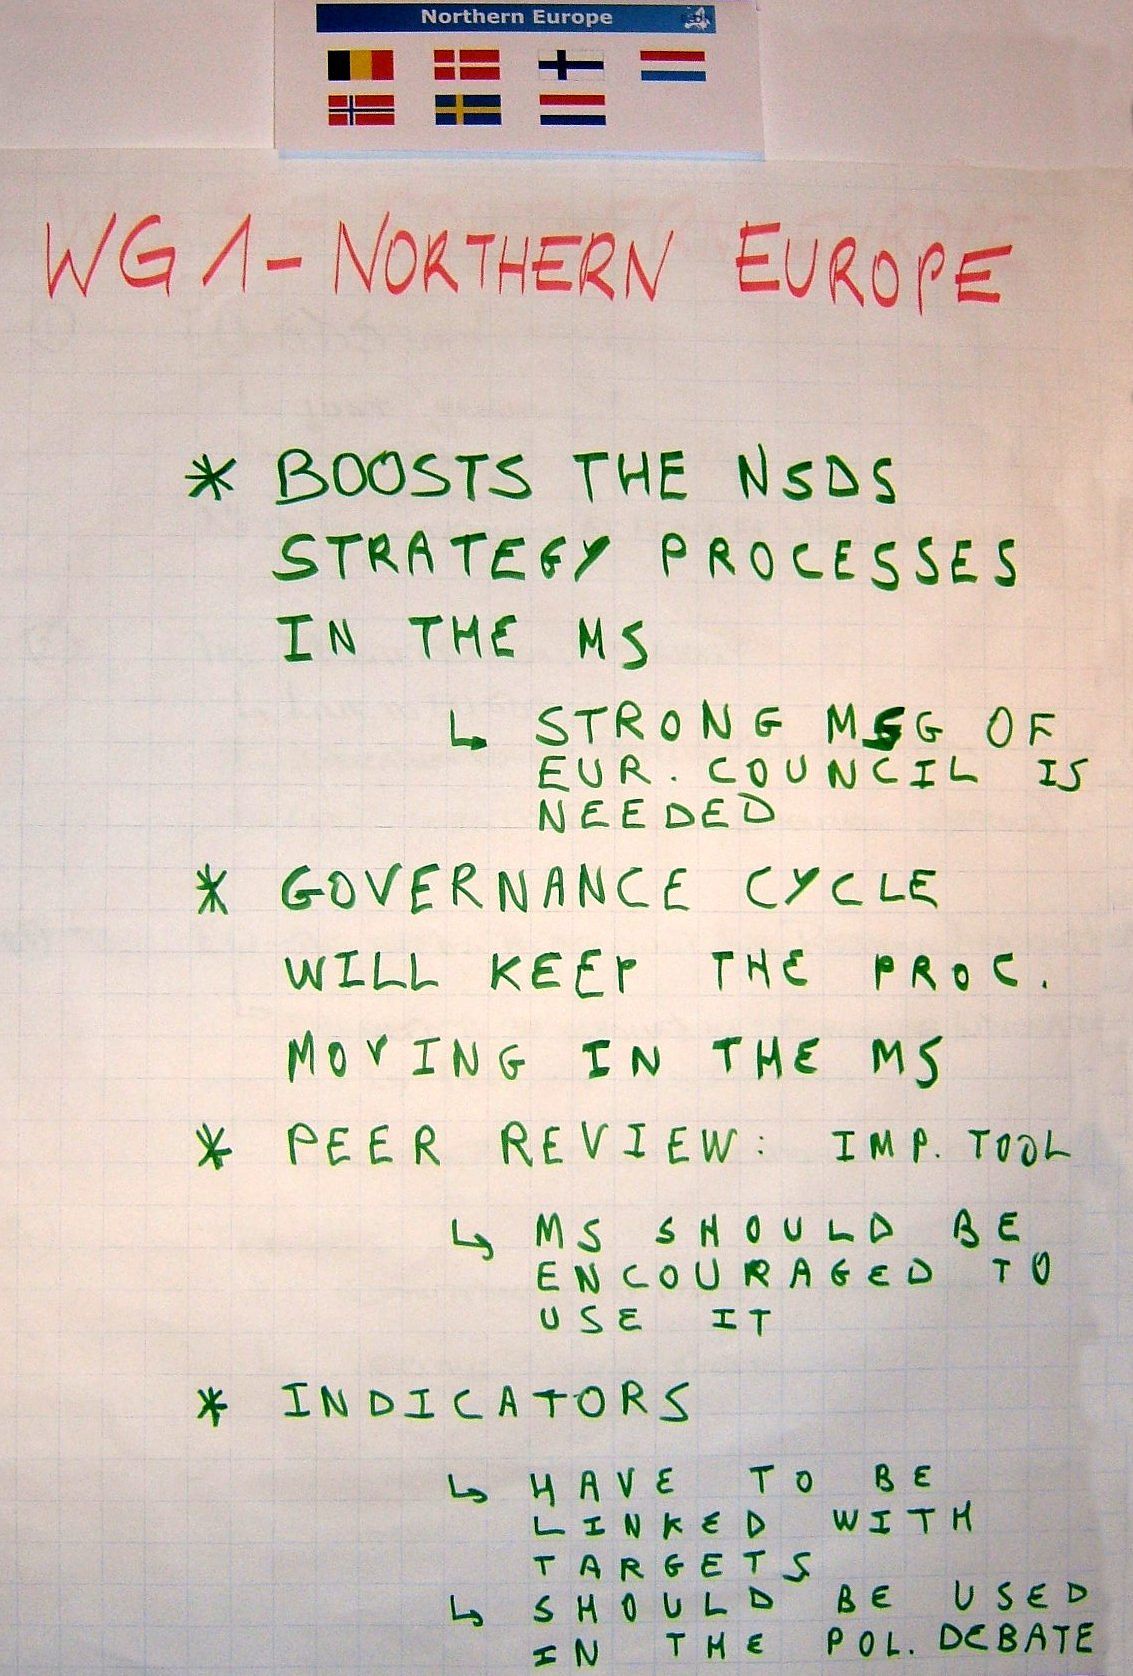 Northern Europe
WG 1 - NORTHERN EUROPE
* BOOSTS THE NSDS
STRATEGY PROCESSES
IN THE MS
↳ STRONG MSG OF
EUR. COUNCIL IS
NEEDED
* GOVERNANCE CYCLE
WILL KEEP THE PROC.
MOVING IN THE MS
* PEER REVIEW: IMP. TOOL
↳ MS SHOULD BE
ENCOURAGED TO
USE IT
* INDICATORS
↳ HAVE TO BE
LINKED WITH
TARGETS
↳ SHOULD BE USED
IN THE POL. DEBATE